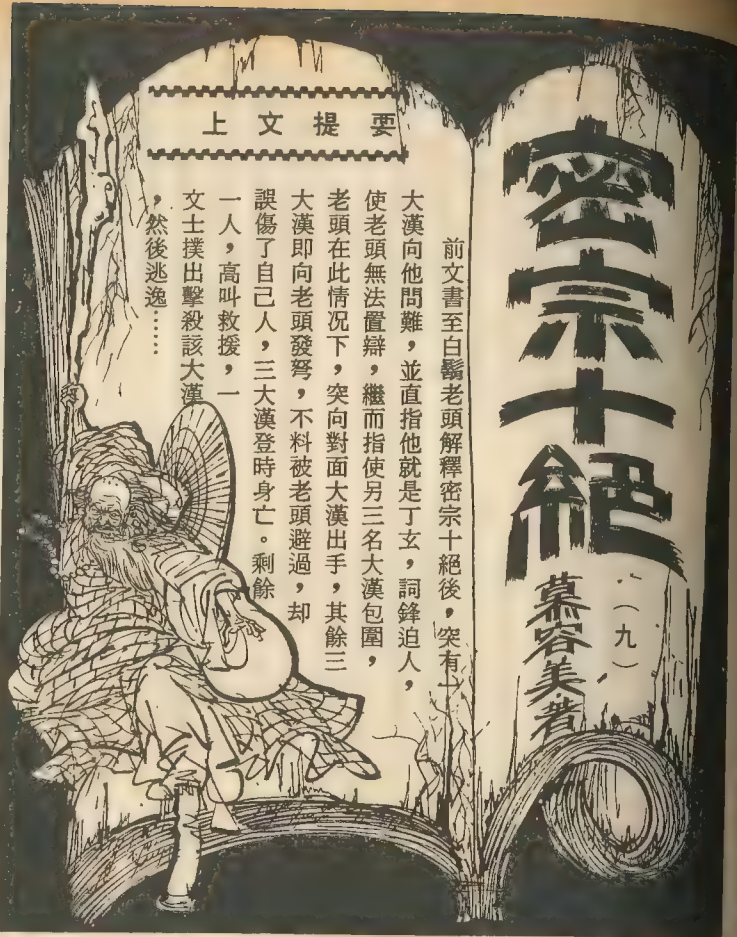 密宗十絕
（九）
慕容美著
上文提要
前文書至白鬍老頭解釋密宗十絕後，突有一
大漢向他問難，並直指他就是丁玄，詞鋒迫人，
使老頭無法置辯，繼而指使另三名大漢包圍，
老頭在此情況下，突向對面大漢出手，其餘三
大漢即向老頭發弩，不料被老頭避過，却
誤傷了自己人，三大漢登時身亡。剩餘
一人，高叫救援，一
文士撲出擊殺該大漢
，然後逃逸……